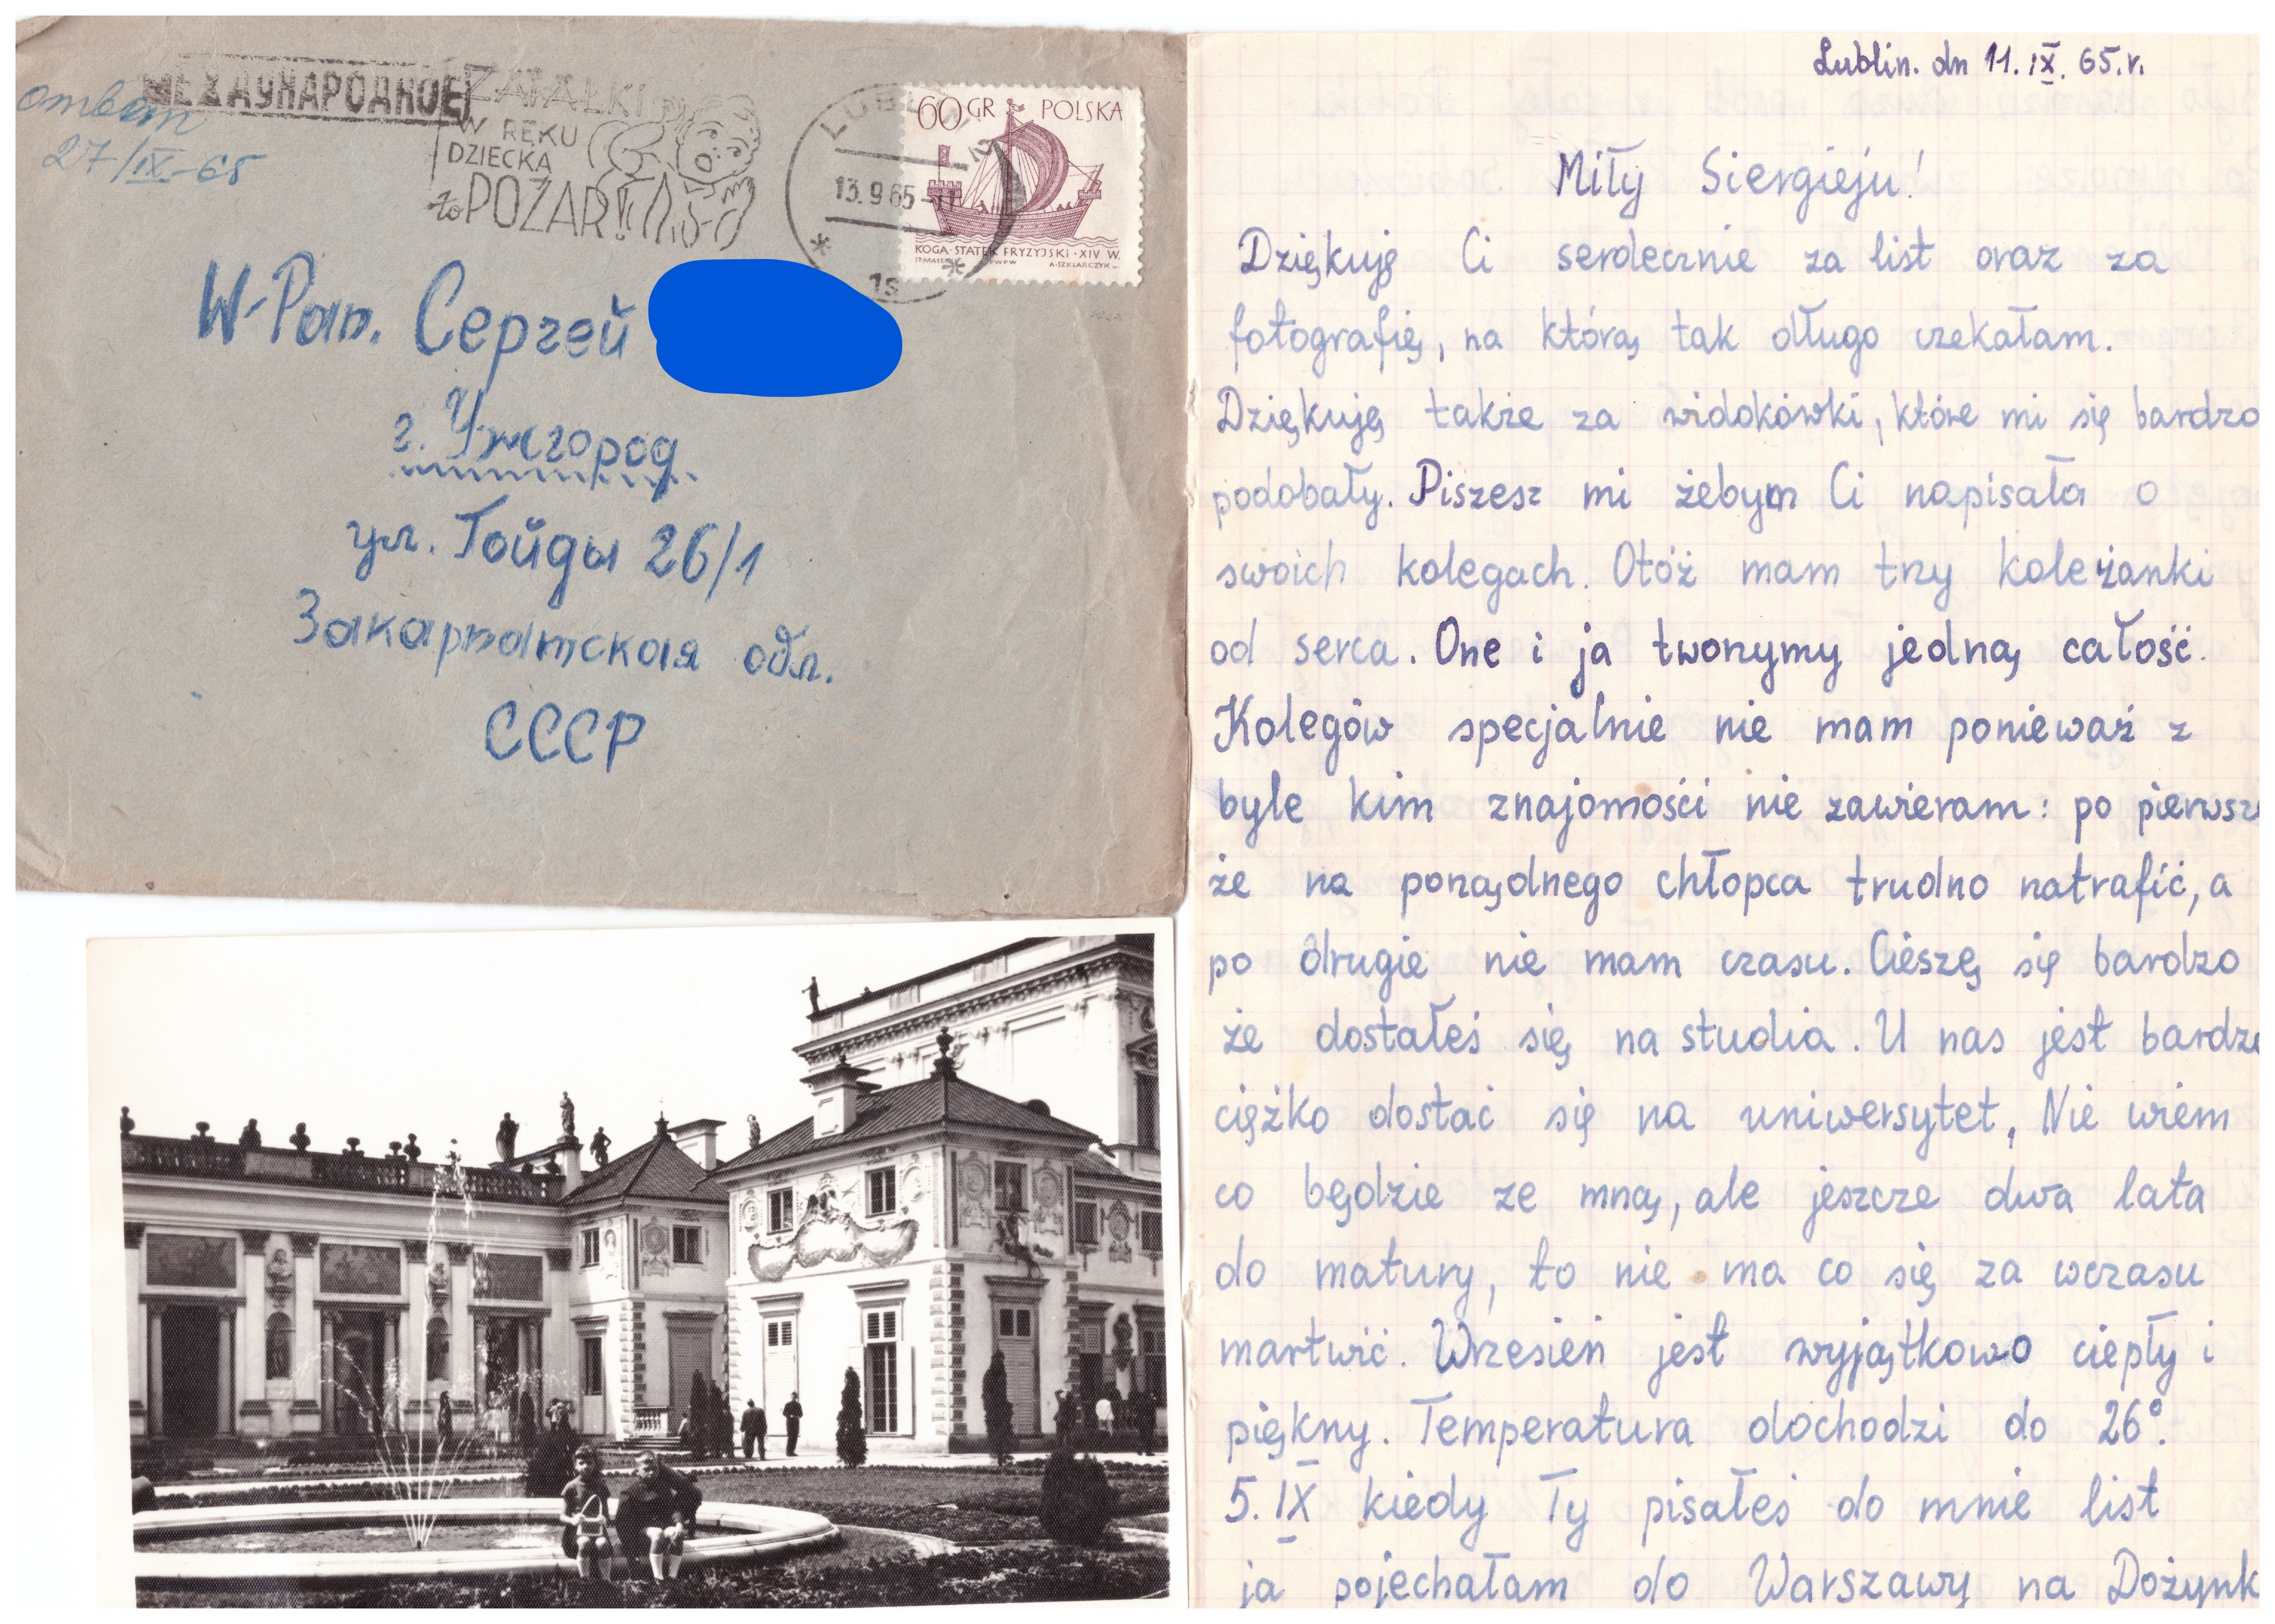 ответ
27/IX-65
МЕЖДУНАРОДНОЕ
ZAPAŁKI
W RĘKU
DZIECKA
to POŻAR!
LUBLIN 2
13.9.65
60 GR POLSKA
KOGA-STATEK FRYZYJSKI·XIV W.
A·SZKLARCZYK
W-Pan. Сергей
г. Ужгород
ул. Гойды 26/1
Закарпатская обл.
СССР
Lublin. dn 11. IX. 65. r.
Miły Siergieju!
Dziękuję Ci serdecznie za list oraz za
fotografię, na którą tak długo czekałam.
Dziękuję także za widokówki, które mi się bardzo
podobały. Piszesz mi żebym Ci napisała o
swoich kolegach. Otóż mam trzy koleżanki
od serca. One i ja tworzymy jedną całość.
Kolegów specjalnie nie mam ponieważ z
byle kim znajomości nie zawieram: po pierwsze
że na porządnego chłopca trudno natrafić, a
po drugie nie mam czasu. Cieszę się bardzo
że dostałeś się na studia. U nas jest bardzo
ciężko dostać się na uniwersytet, Nie wiem
co będzie ze mną, ale jeszcze dwa lata
do matury, to nie ma co się za wczasu
martwić. Wrzesień jest wyjątkowo ciepły i
piękny. Temperatura dochodzi do 26°.
5. IX kiedy Ty pisałeś do mnie list
ja pojechałam do Warszawy na Dożynk